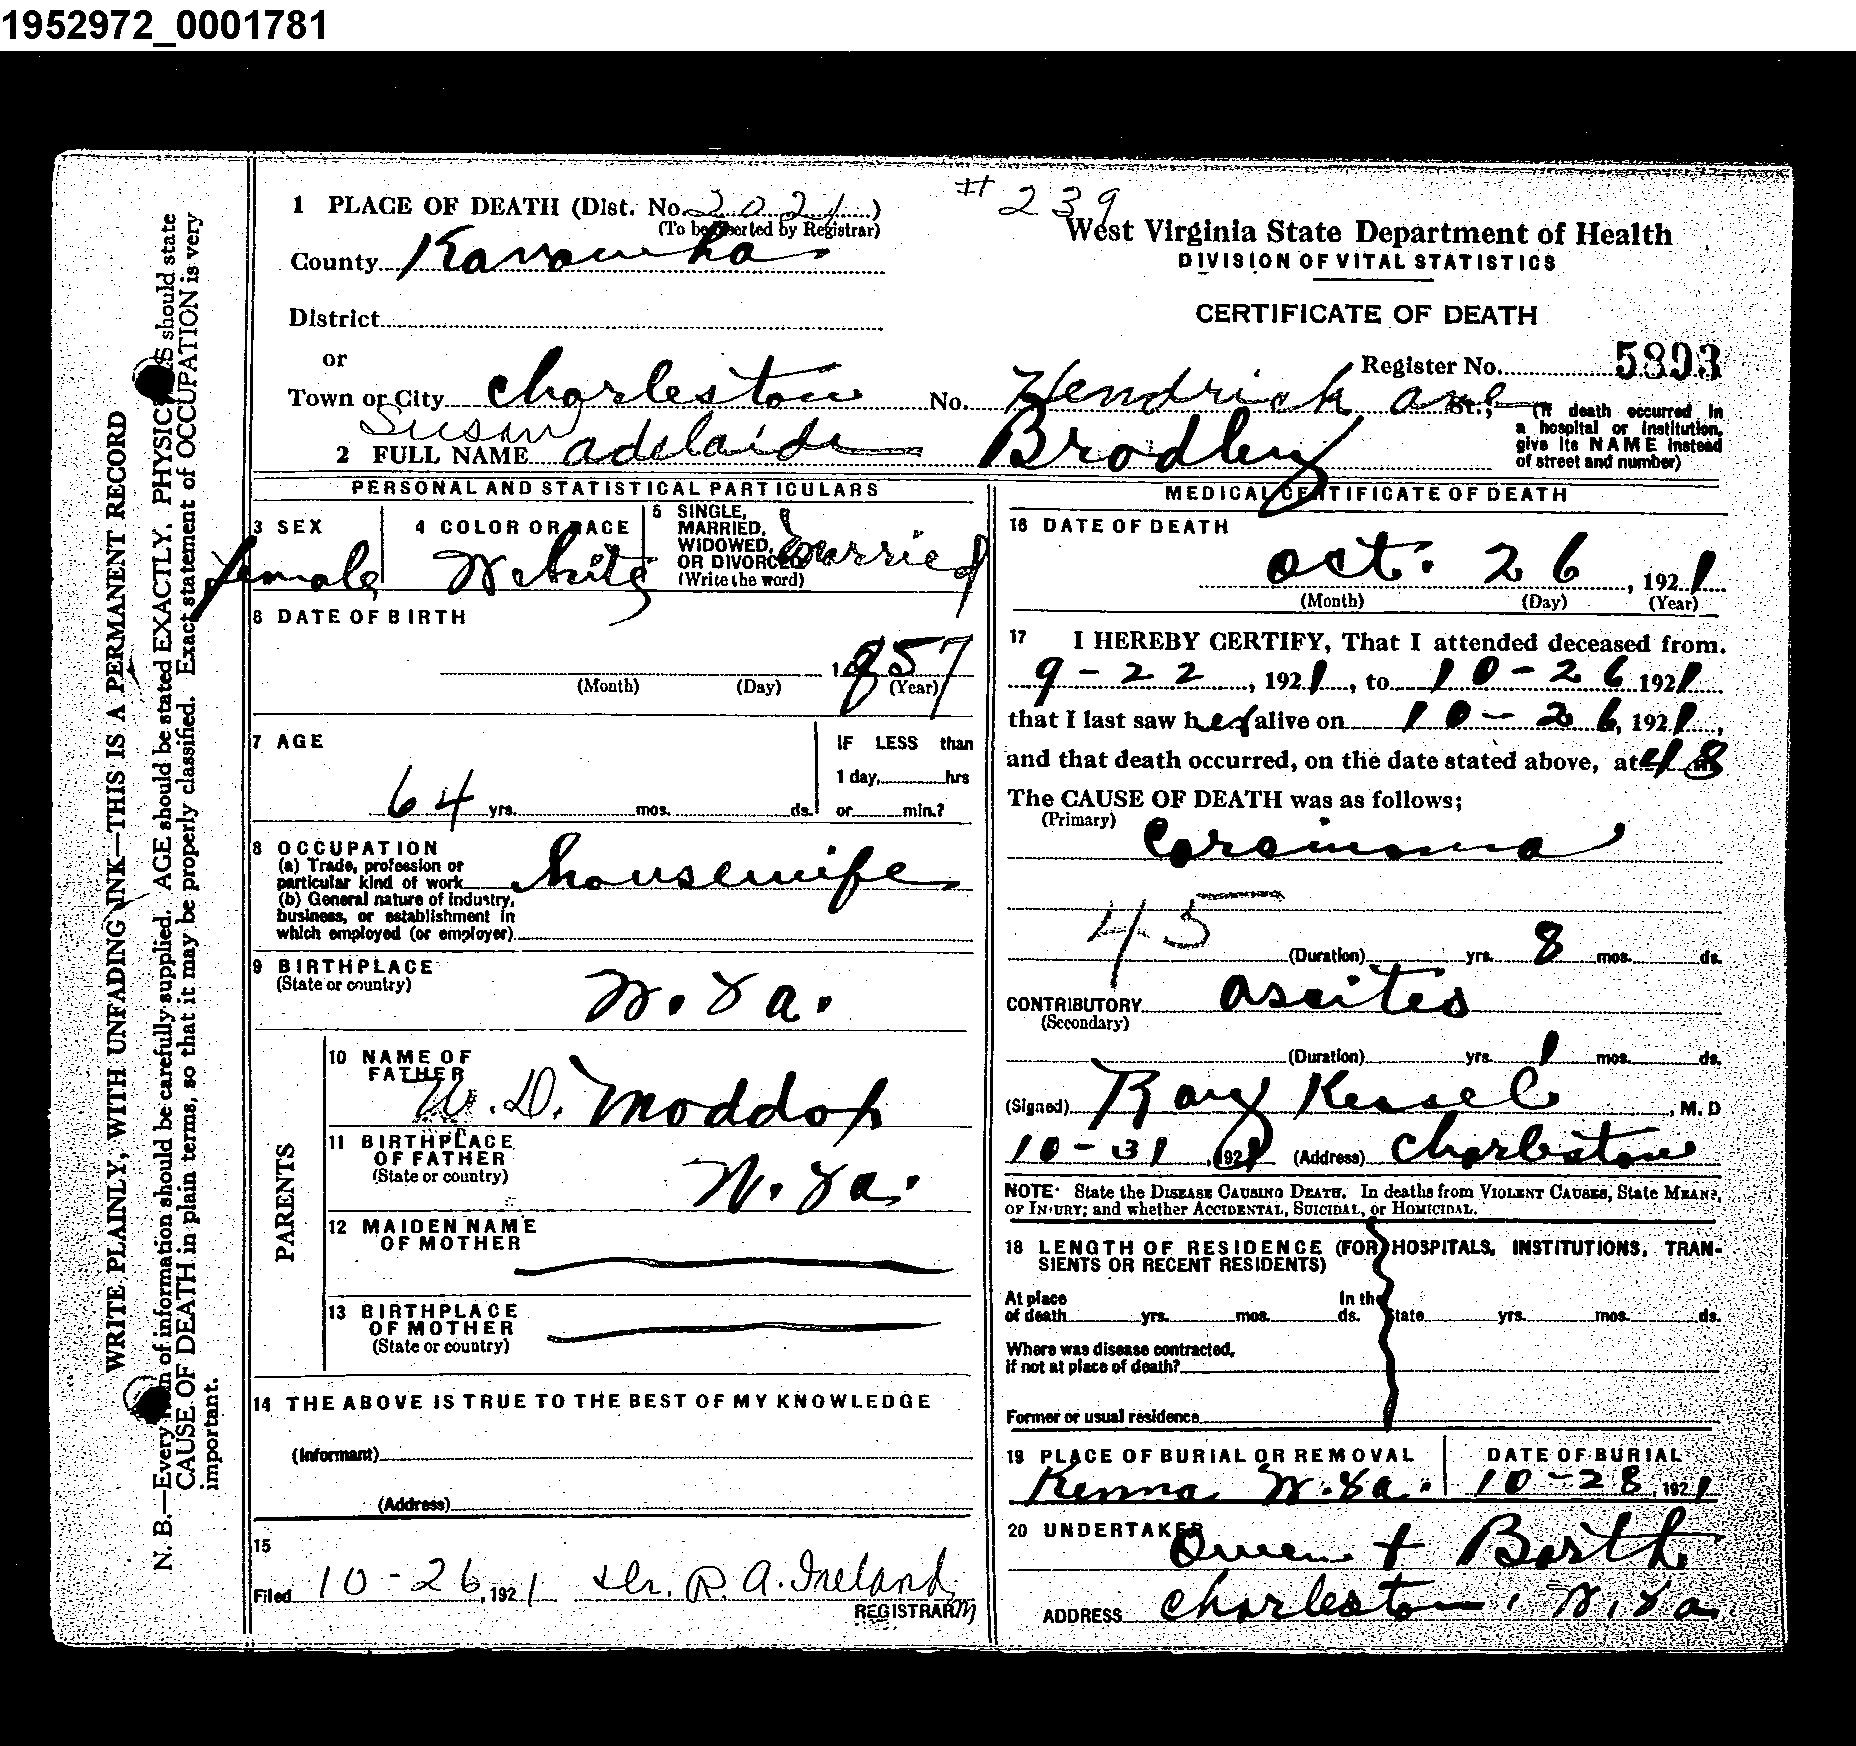 1952972_0001781
WRITE PLAINLY, WITH UNFADING INK—THIS IS A PERMANENT RECORD
N. B.—Every of information should be carefully supplied. AGE should be stated EXACTLY. PHYSIC S should state
CAUSE OF DEATH in plain terms, so that it may be properly classified. Exact statement of OCCUPATION is very
important.
1 PLACE OF DEATH (Dist. No. 2021)
(To be inserted by Registrar)
County Kanawha
District
or
Town or City Charleston
# 239
West Virginia State Department of Health
DIVISION OF VITAL STATISTICS
CERTIFICATE OF DEATH
Register No. 5893
No. Hendrick ave St.; (If death occurred in
a hospital or institution,
give its NAME instead
of street and number)
Susan
2 FULL NAME Adelaide Bradley
PERSONAL AND STATISTICAL PARTICULARS
3 SEX
female
4 COLOR OR RACE
White
5 SINGLE,
MARRIED,
WIDOWED,
OR DIVORCED
(Write the word)
Married
6 DATE OF BIRTH
1857
(Month) (Day) (Year)
7 AGE
64 yrs. mos. ds.
IF LESS than
1 day, hrs
or min.?
8 OCCUPATION
(a) Trade, profession or
particular kind of work housewife
(b) General nature of industry,
business, or establishment in
which employed (or employer)
9 BIRTHPLACE
(State or country)
W. Va.
PARENTS
10 NAME OF
FATHER
W. D. Maddox
11 BIRTHPLACE
OF FATHER
(State or country)
W. Va.
12 MAIDEN NAME
OF MOTHER
13 BIRTHPLACE
OF MOTHER
(State or country)
14 THE ABOVE IS TRUE TO THE BEST OF MY KNOWLEDGE
(Informant)
(Address)
15
Filed 10-26, 1921 Dr. R. A. Ireland
REGISTRAR
MEDICAL CERTIFICATE OF DEATH
16 DATE OF DEATH
Oct. 26, 1921
(Month) (Day) (Year)
17 I HEREBY CERTIFY, That I attended deceased from.
9-22, 1921, to 10-26 1921
that I last saw her alive on 10-26, 1921,
and that death occurred, on the date stated above, at
The CAUSE OF DEATH was as follows;
(Primary)
Carcinoma
45
(Duration) yrs. 8 mos. ds.
CONTRIBUTORY ascites
(Secondary)
(Duration) yrs. 1 mos. ds.
(Signed) Ray Kessel, M. D
10-31, 1921 (Address) Charleston
NOTE: State the DISEASE CAUSING DEATH. In deaths from VIOLENT CAUSES, State MEANS
OF INJURY; and whether ACCIDENTAL, SUICIDAL, or HOMICIDAL.
18 LENGTH OF RESIDENCE (FOR HOSPITALS, INSTITUTIONS, TRAN-
SIENTS OR RECENT RESIDENTS)
At place
of death yrs. mos. ds. In the State yrs. mos. ds.
Where was disease contracted,
if not at place of death?
Former or usual residence
19 PLACE OF BURIAL OR REMOVAL
Kenna W. Va.
DATE OF BURIAL
10-28, 1921
20 UNDERTAKER
Owen + Barth
ADDRESS Charleston, W. Va.